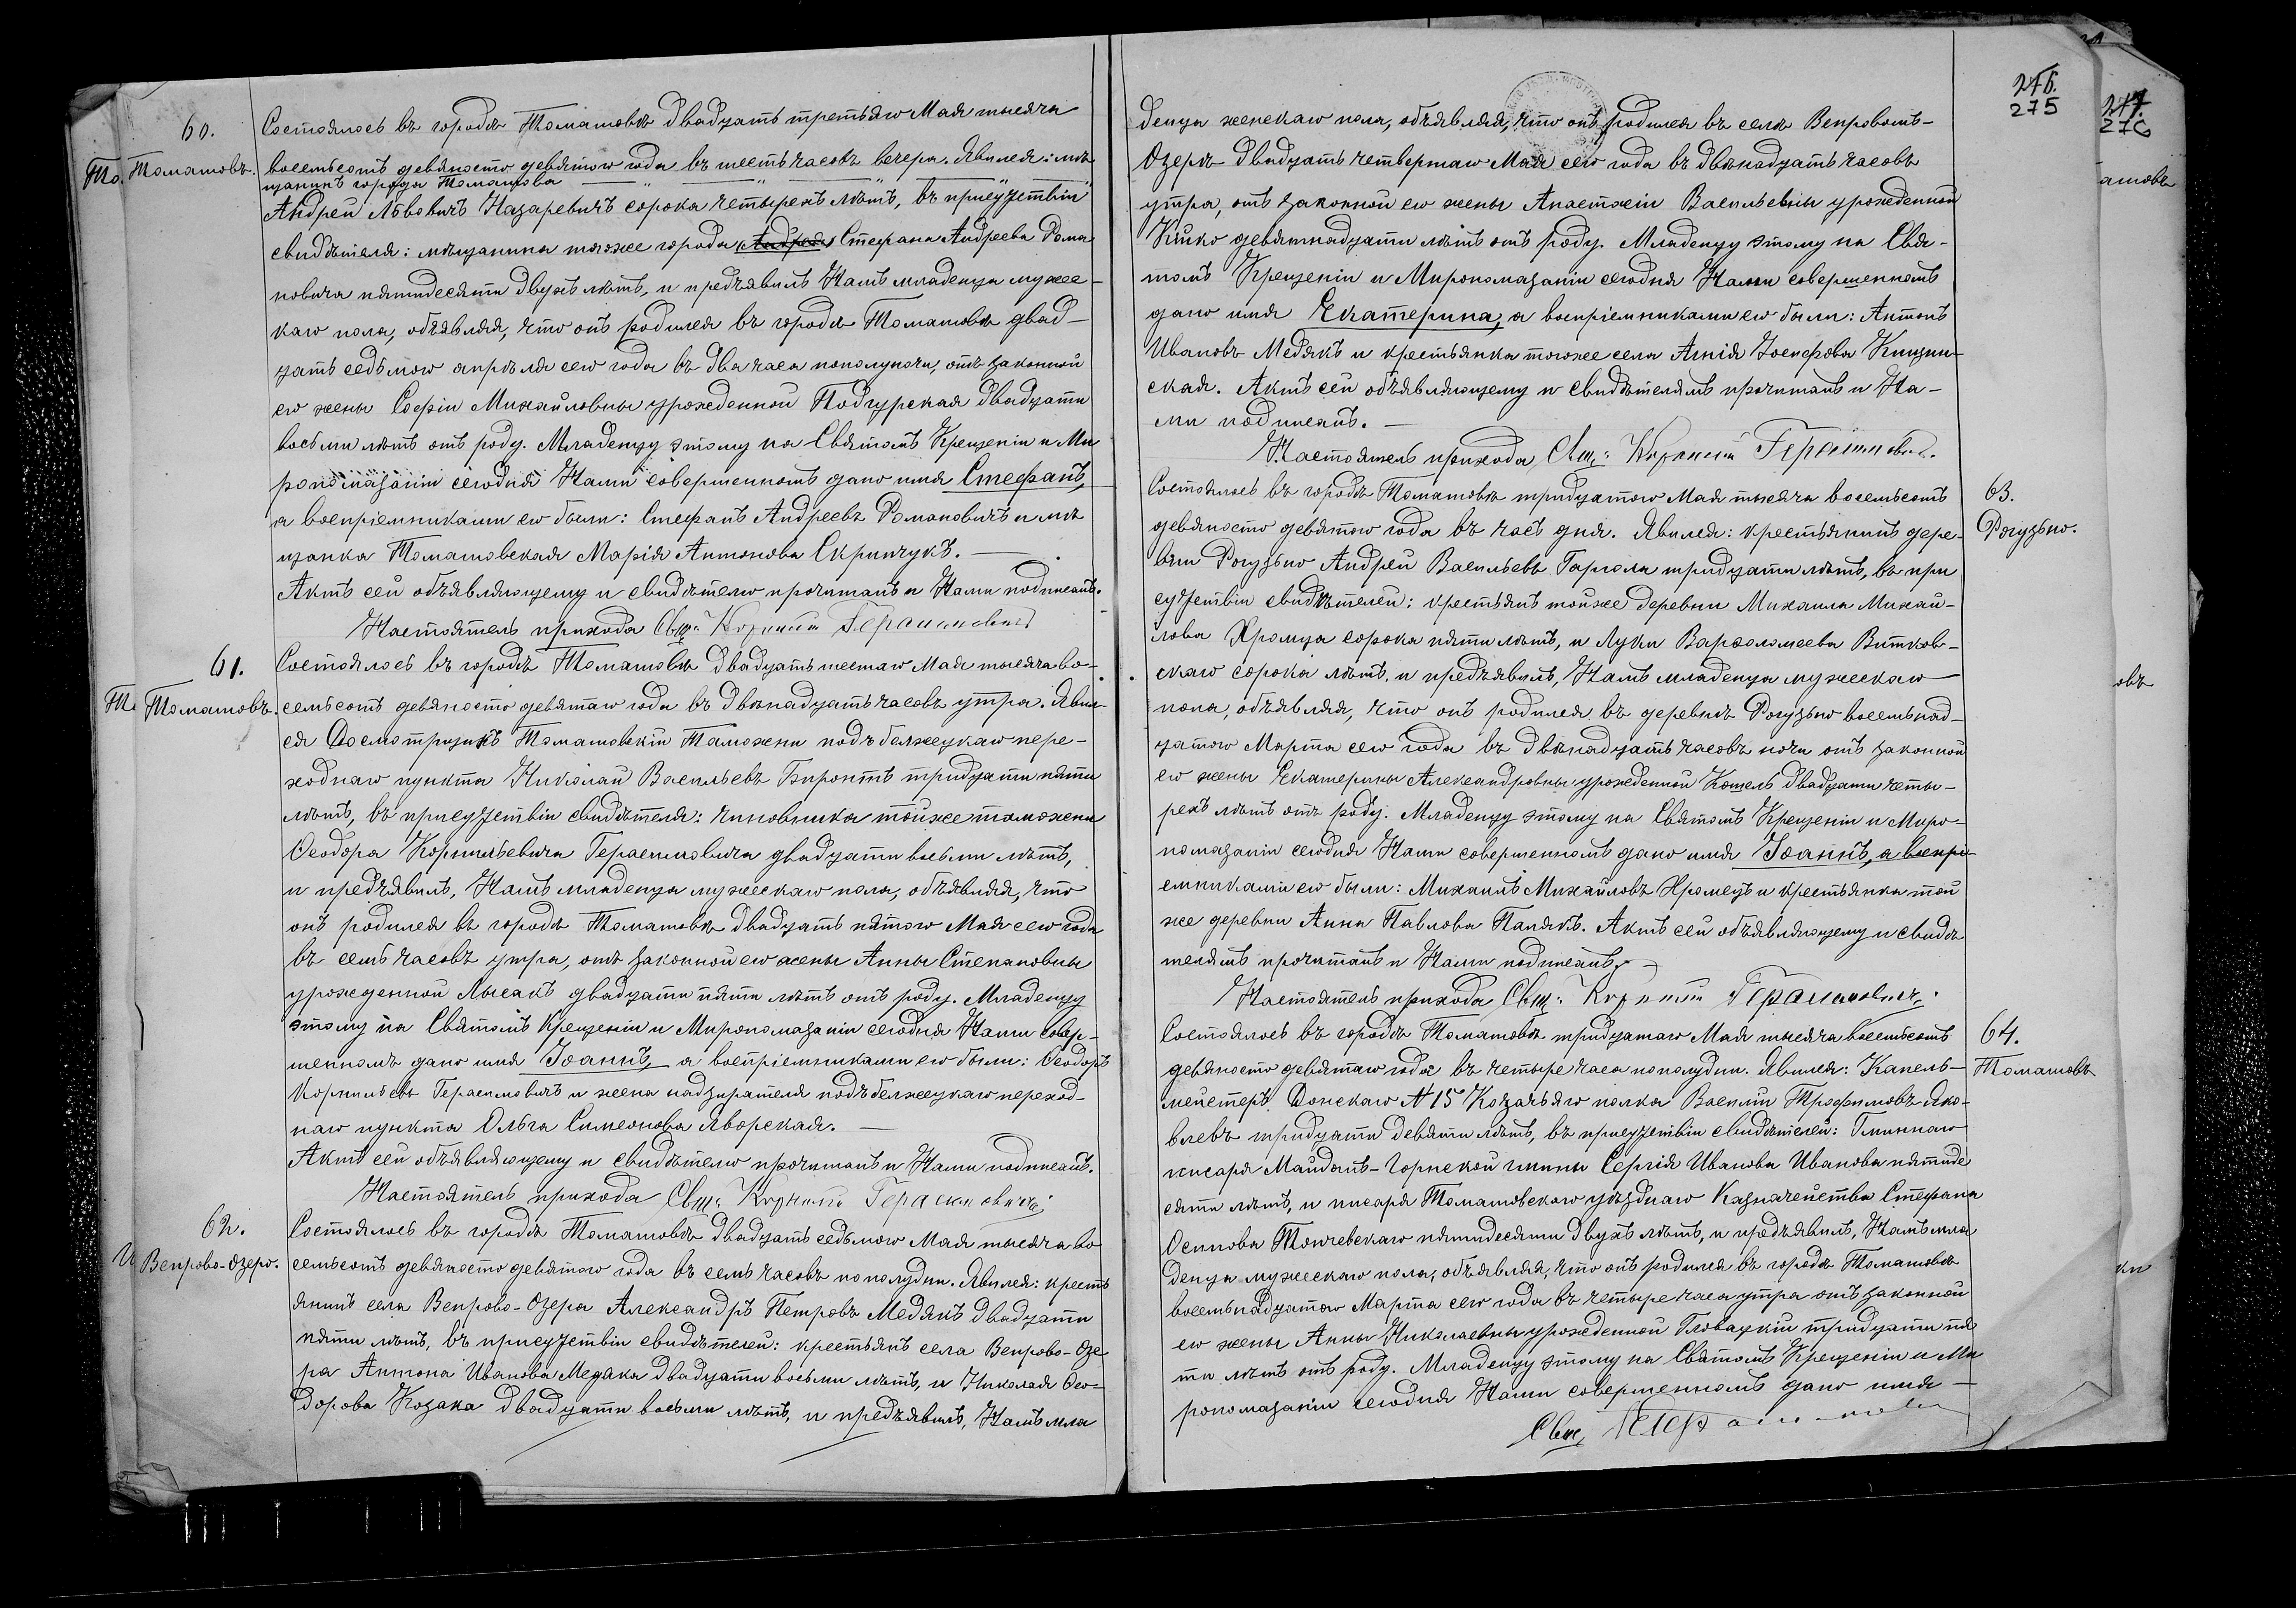 60.
Томашовъ.
Состоялось въ городѣ Томашовѣ двадцать третьяго Мая тысяча
восемьсотъ девяносто девятого года въ шесть часовъ вечера. Явился: мѣ
щанинъ города Томашова
Андрей Львовичъ Назаревичъ сорока четырехъ лѣтъ, въ присутствіи
свидѣтеля: мѣщанина тогоже города Андрея Стефана Андреева Рома
новича пятидесяти двухъ лѣтъ, и предъявилъ Намъ младенца мужес-
каго пола, объявляя, что онъ родился въ городѣ Томашовѣ двад-
цать седьмого апрѣля сего года въ два часа пополуночи, отъ законной
его жены Софіи Михайловны урожденной Подгурская двадцати
восьми лѣтъ отъ роду. Младенцу этому на Святомъ Крещеніи и Ми
ропомазаніи сегодня Нами совершенномъ дано имя Стефанъ,
а воспріемниками его были: Стефанъ Андреевъ Романовичъ и мѣ
щанка Томашовская Марія Антонова Скрипчукъ.
Актъ сей объявляющему и свидѣтелю прочитанъ и Нами подписанъ.
Настоятель прихода Свщ: Корнилій Герасимовичъ
61.
Томашовъ.
Состоялось въ городѣ Томашовѣ двадцать шестаго Мая тысяча во-
семьсотъ девяносто девятаго года въ двѣнадцать часовъ утра. Явил-
ся Досмотрщикъ Томашовскій Таможни подъ белжецкаго пере-
ходнаго пункта Николай Васильевъ Биронтъ тридцати пяти
лѣтъ, въ присутствіи свидѣтеля: чиновника тойже таможни
Ѳеодора Корнильевича Герасимовича двадцати восьми лѣтъ,
и предъявилъ, Намъ младенца мужескаго пола, объявляя, что
онъ родился въ городѣ Томашовѣ двадцать пятого Мая сего года
въ семь часовъ утра, отъ законной его жены Анны Степановны
урожденной Лысакъ двадцати пяти лѣтъ отъ роду. Младенцу
этому на Святомъ Крещеніи и Миропомазаніи сегодня Нами совер-
шенномъ дано имя Іоаннъ, а воспріемниками его были: Ѳеодоръ
Корнильевъ Герасимовичъ и жена надзирателя подъ белжецкаго переход-
наго пункта Ольга Симеонова Яворская.
Актъ сей объявляющему и свидѣтелю прочитанъ и Нами подписанъ.
Настоятель прихода Свщ: Корнилій Герасимовичъ
62.
Вепрово-Озеро.
Состоялось въ городѣ Томашовѣ двадцать седьмого Мая тысяча во
семьсотъ девяносто девятого года въ семь часовъ пополудни. Явился: кресть
янинъ села Вепрово-Озера Александръ Петровъ Медякъ двадцати
пяти лѣтъ, въ присутствіи свидѣтелей: крестьянъ села Вепрово-Озе
ра Антона Иванова Медяка двадцати восьми лѣтъ, и Николая Ѳео-
дорова Козака двадцати восьми лѣтъ, и предъявилъ, Намъ мла
275
денца женскаго пола, объявляя, что онъ родился въ селѣ Вепровомъ-
Озерѣ двадцать четвертаго Мая сего года въ двѣнадцать часовъ
утра, отъ законной его жены Анастасіи Васильевны урожденной
Кицко девятнадцати лѣтъ отъ роду. Младенцу этому на Свя-
томъ Крещеніи и Миропомазаніи сегодня Нами совершенномъ
дано имя Екатерина, а воспріемниками его были: Антонъ
Ивановъ Медякъ и крестьянка тогоже села Агнія Іосифова Кищин-
ская. Актъ сей объявляющему и свидѣтелямъ прочитанъ и На-
ми подписанъ.
Настоятель прихода Свщ: Корнилій Герасимовичъ.
63.
Рогузьно.
Состоялось въ городѣ Томашовѣ тридцатого Мая тысяча восемьсотъ
девяносто девятого года въ часъ дня. Явился: крестьянинъ дере-
вни Рогузьно Андрей Васильевъ Гаргола тридцати лѣтъ, въ при
сутствіи свидѣтелей: крестьянъ тойже деревни Михаила Михай-
лова Хромца сорока пяти лѣтъ, и Луки Варѳоломеева Витков-
скаго сорока лѣтъ, и предъявилъ, Намъ младенца мужескаго
пола, объявляя, что онъ родился въ деревнѣ Рогузьно восемьнад-
цатого Марта сего года въ двѣнадцать часовъ ночи отъ законной
его жены Екатерины Александровны урожденной Котель двадцати четы-
рехъ лѣтъ отъ роду. Младенцу этому на Святомъ Крещеніи и Миро-
помазаніи сегодня Нами совершенномъ дано имя Іоаннъ, а воспрі-
емниками его были: Михаилъ Михайловъ Хромецъ и крестьянка той
же деревни Анна Павлова Папякъ. Актъ сей объявляющему и свидѣ
телямъ прочитанъ и Нами подписанъ.
Настоятель прихода Свщ: Корнилій Герасимовичъ.
64.
Томашовъ
Состоялось въ городѣ Томашовѣ тридцатаго Мая тысяча восемьсотъ
девяносто девятаго года въ четыре часа пополудни. Явился: Капель-
мейстеръ Донскаго N 15 Козачьяго полка Василій Трофимовъ Яко-
влевъ тридцати девяти лѣтъ, въ присутствіи свидѣтелей: Гминнаго
писаря Майданъ-Горнской гмины Сергія Иванова Иванова пятиде
сяти лѣтъ, и писаря Томашовскаго уѣзднаго Казначейства Стефана
Осипова Тончевскаго пятидесяти двухъ лѣтъ, и предъявилъ, Намъ мла
денца мужескаго пола, объявляя, что онъ родился въ городѣ Томашовѣ
восемьнадцатаго Марта сего года въ четыре часа утра отъ законной
его жены Анны Николаевны урожденной Гловацкій тридцати пя
ти лѣтъ отъ роду. Младенцу этому на Святомъ Крещеніи и Ми
ропомазаніи сегодня Нами совершенномъ дано имя
Свщ. Герасимович
276